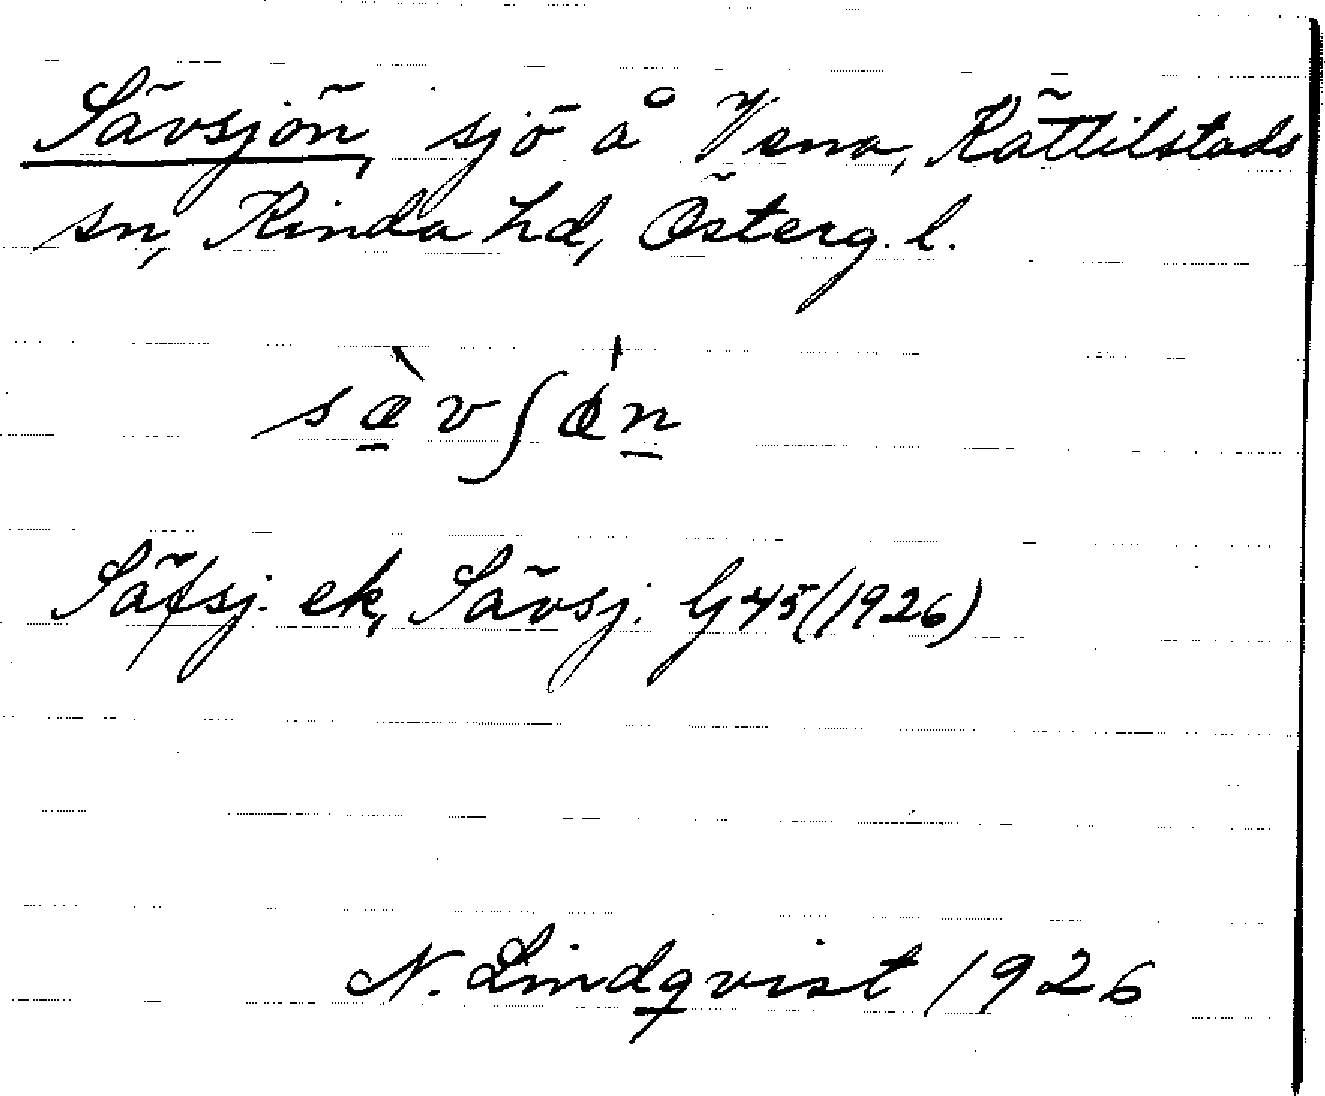 Sävsjön, sjö å Vena, Kättilstads
sn, Kinda hd, Österg. l.
sæ̀vʃǿn
Säfsj. ek, Sävsj. G45(1926)
N. Lindqvist 1926